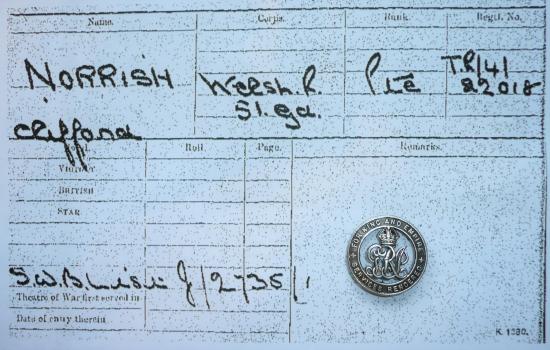 Name. Corps. Rank. Regtl. No.
NORRISH Welsh. R. Pte TR/4/
Clifford 51. Gd. 82018
Roll. Page. Remarks.
VICTORY
BRITISH
STAR
S.W.B. List J/2735/1
Theatre of War first served in
Date of entry therein
K 1380.
FOR KING AND EMPIRE
SERVICES RENDERED